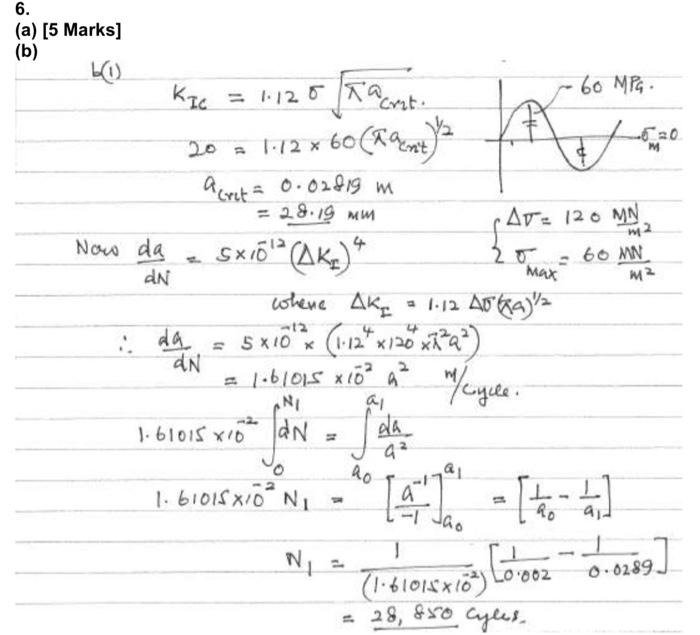 6.
(a) [5 Marks]
(b)
b(1)
K_IC = 1.12 σ √(π a_crit.)
60 MPa.
20 = 1.12 × 60 (π a_crit)^1/2
σ_m = 0
a_crit = 0.02819 m
= 28.19 mm
Δσ = 120 MN/m²
σ_Max = 60 MN/m²
Now da/dN = 5×10^-12 (ΔK_I)^4
where ΔK_I = 1.12 Δσ(πa)^1/2
∴ da/dN = 5×10^-12 × (1.12^4 × 120^4 × π²a²)
= 1.61015 ×10^-2 a² m/cycle.
1.61015 ×10^-2 ∫_0^N1 dN = ∫_a0^a1 da/a²
1.61015×10^-2 N_1 = [a^-1/-1]_a0^a1 = [1/a_0 - 1/a_1]
N_1 = 1/(1.61015×10^-2) [1/0.002 - 1/0.0289]
= 28,850 cycles.